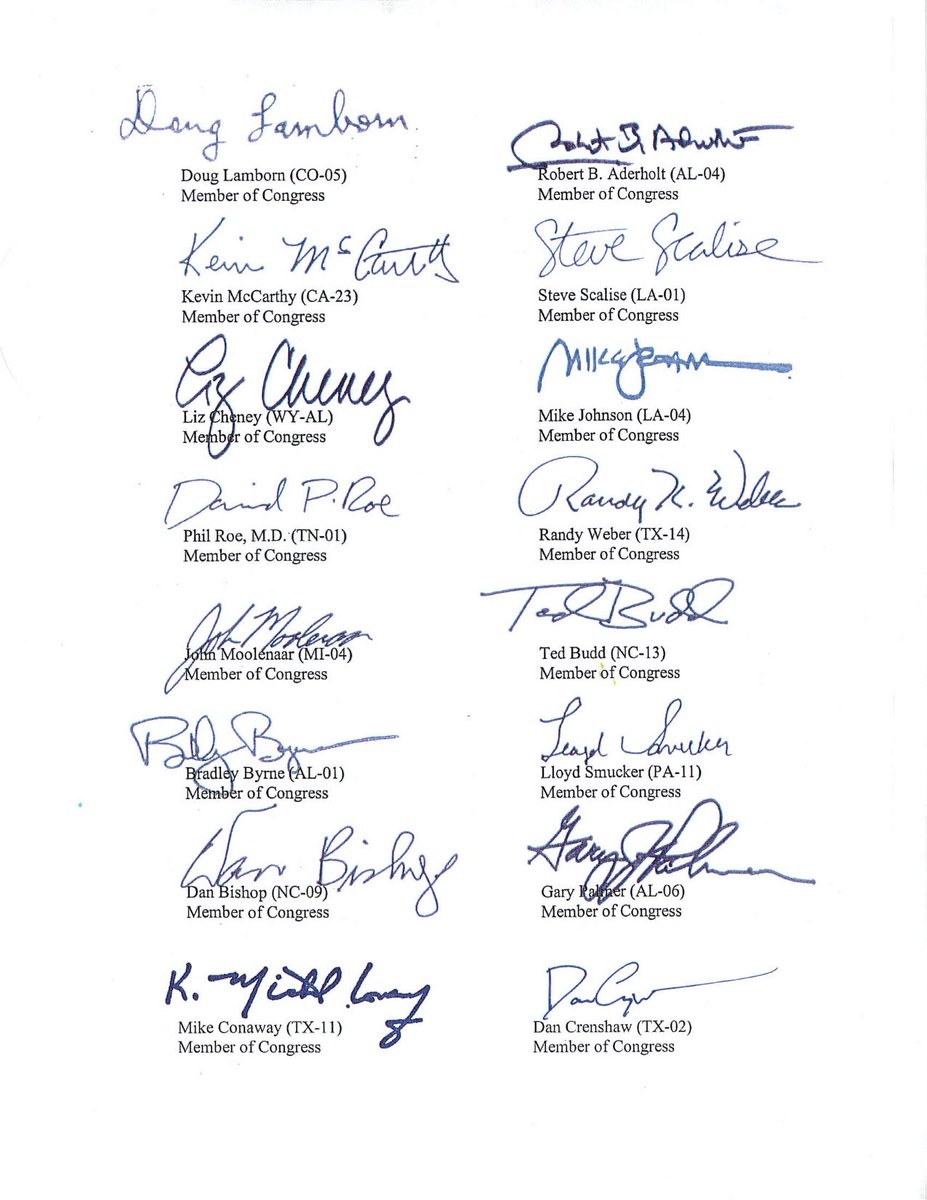 Doug Lamborn
Doug Lamborn (CO-05)
Member of Congress
Robert B. Aderholt
Robert B. Aderholt (AL-04)
Member of Congress
Kevin McCarthy
Kevin McCarthy (CA-23)
Member of Congress
Steve Scalise
Steve Scalise (LA-01)
Member of Congress
Liz Cheney
Liz Cheney (WY-AL)
Member of Congress
Mike Johnson
Mike Johnson (LA-04)
Member of Congress
David P. Roe
Phil Roe, M.D. (TN-01)
Member of Congress
Randy K. Weber
Randy Weber (TX-14)
Member of Congress
John Moolenaar
John Moolenaar (MI-04)
Member of Congress
Ted Budd
Ted Budd (NC-13)
Member of Congress
Bradley Byrne
Bradley Byrne (AL-01)
Member of Congress
Lloyd Smucker
Lloyd Smucker (PA-11)
Member of Congress
Dan Bishop
Dan Bishop (NC-09)
Member of Congress
Gary Palmer
Gary Palmer (AL-06)
Member of Congress
K. Michael Conaway
Mike Conaway (TX-11)
Member of Congress
Dan Crenshaw
Dan Crenshaw (TX-02)
Member of Congress